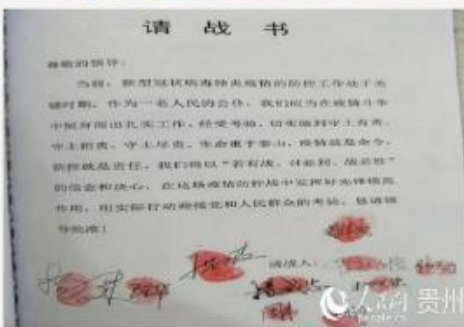 请 战 书
尊敬的领导：
当前，新型冠状病毒肺炎疫情的防控工作处于关
键时期，作为一名人民的公仆，我们应当在疫情斗争
中挺身而出扎实工作，经受考验，切实做到守土有责、
守土担责、守土尽责。生命重于泰山，疫情就是命令，
防控就是责任。我们将以“若有战，召必到，战必胜”
的信念和决心，在这场疫情防控战中发挥好先锋模范
作用，用实际行动迎接党和人民群众的考验，恳请领
导批准！
请战人：
人民网 贵州
people.cn